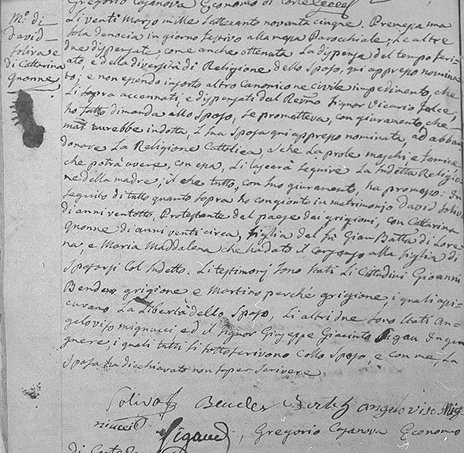 Gregorio Casanova Economo di Corte
M.o di
David
Soliva e
di Cattarina
gnonne
Li venti Marzo mille settecento novanta cinque. Premessa una
sola denocia in giorno festivo alla messa Parochiale, le altre
due dispensate, come anche ottenuta la dispensa del tempo feri-
ato, e della diversità di Religione dello Sposo, qui appresso nomina-
to; e non essendo insorto altro Canonico ne civile impedimento, che
li sopra accennati, e dispensati dal Revmo Signor Vicario
ho fatto dimanda allo Sposo, se prometteva, con giuramento, che
mai avrebbe indotta, la sua Sposa qui appresso nominata, ad abban-
donare la Religione Cattolica, e che la prole maschi e femine
che potrà avere, con essa, li lascerà seguire la sudetta Religio-
ne della madre; il che tutto, con suo giuramento, ha promesso. In
seguito di tutto quanto sopra ho congionto in matrimonio David Soliva
di anni ventotto, Protestante del paese dei grigioni, con Cattarina
gnonne di anni venti circa, figlia del fu Gian Batta di Lore-
na e Maria Maddalena che ha dato il Consenso alla figlia di
Sposarsi col sudetto. Li testimonj sono stati li Cittadini Gioanni
Bender grigione e Martino perchè grigione, i quali assi-
curano la libertà dello Sposo, li altri due sono stati An-
gelo viso mignucci ed il Signor Giuseppe Giacinto Sigau Inge-
gnere, i quali tutti si sottoscrivono collo Sposo, e con me, la
Sposa ha dichiarato non saper scrivere
Soliva Bender angelo viso Mig
niucci Sigaud, Gregorio Casanova Economo
di Corte